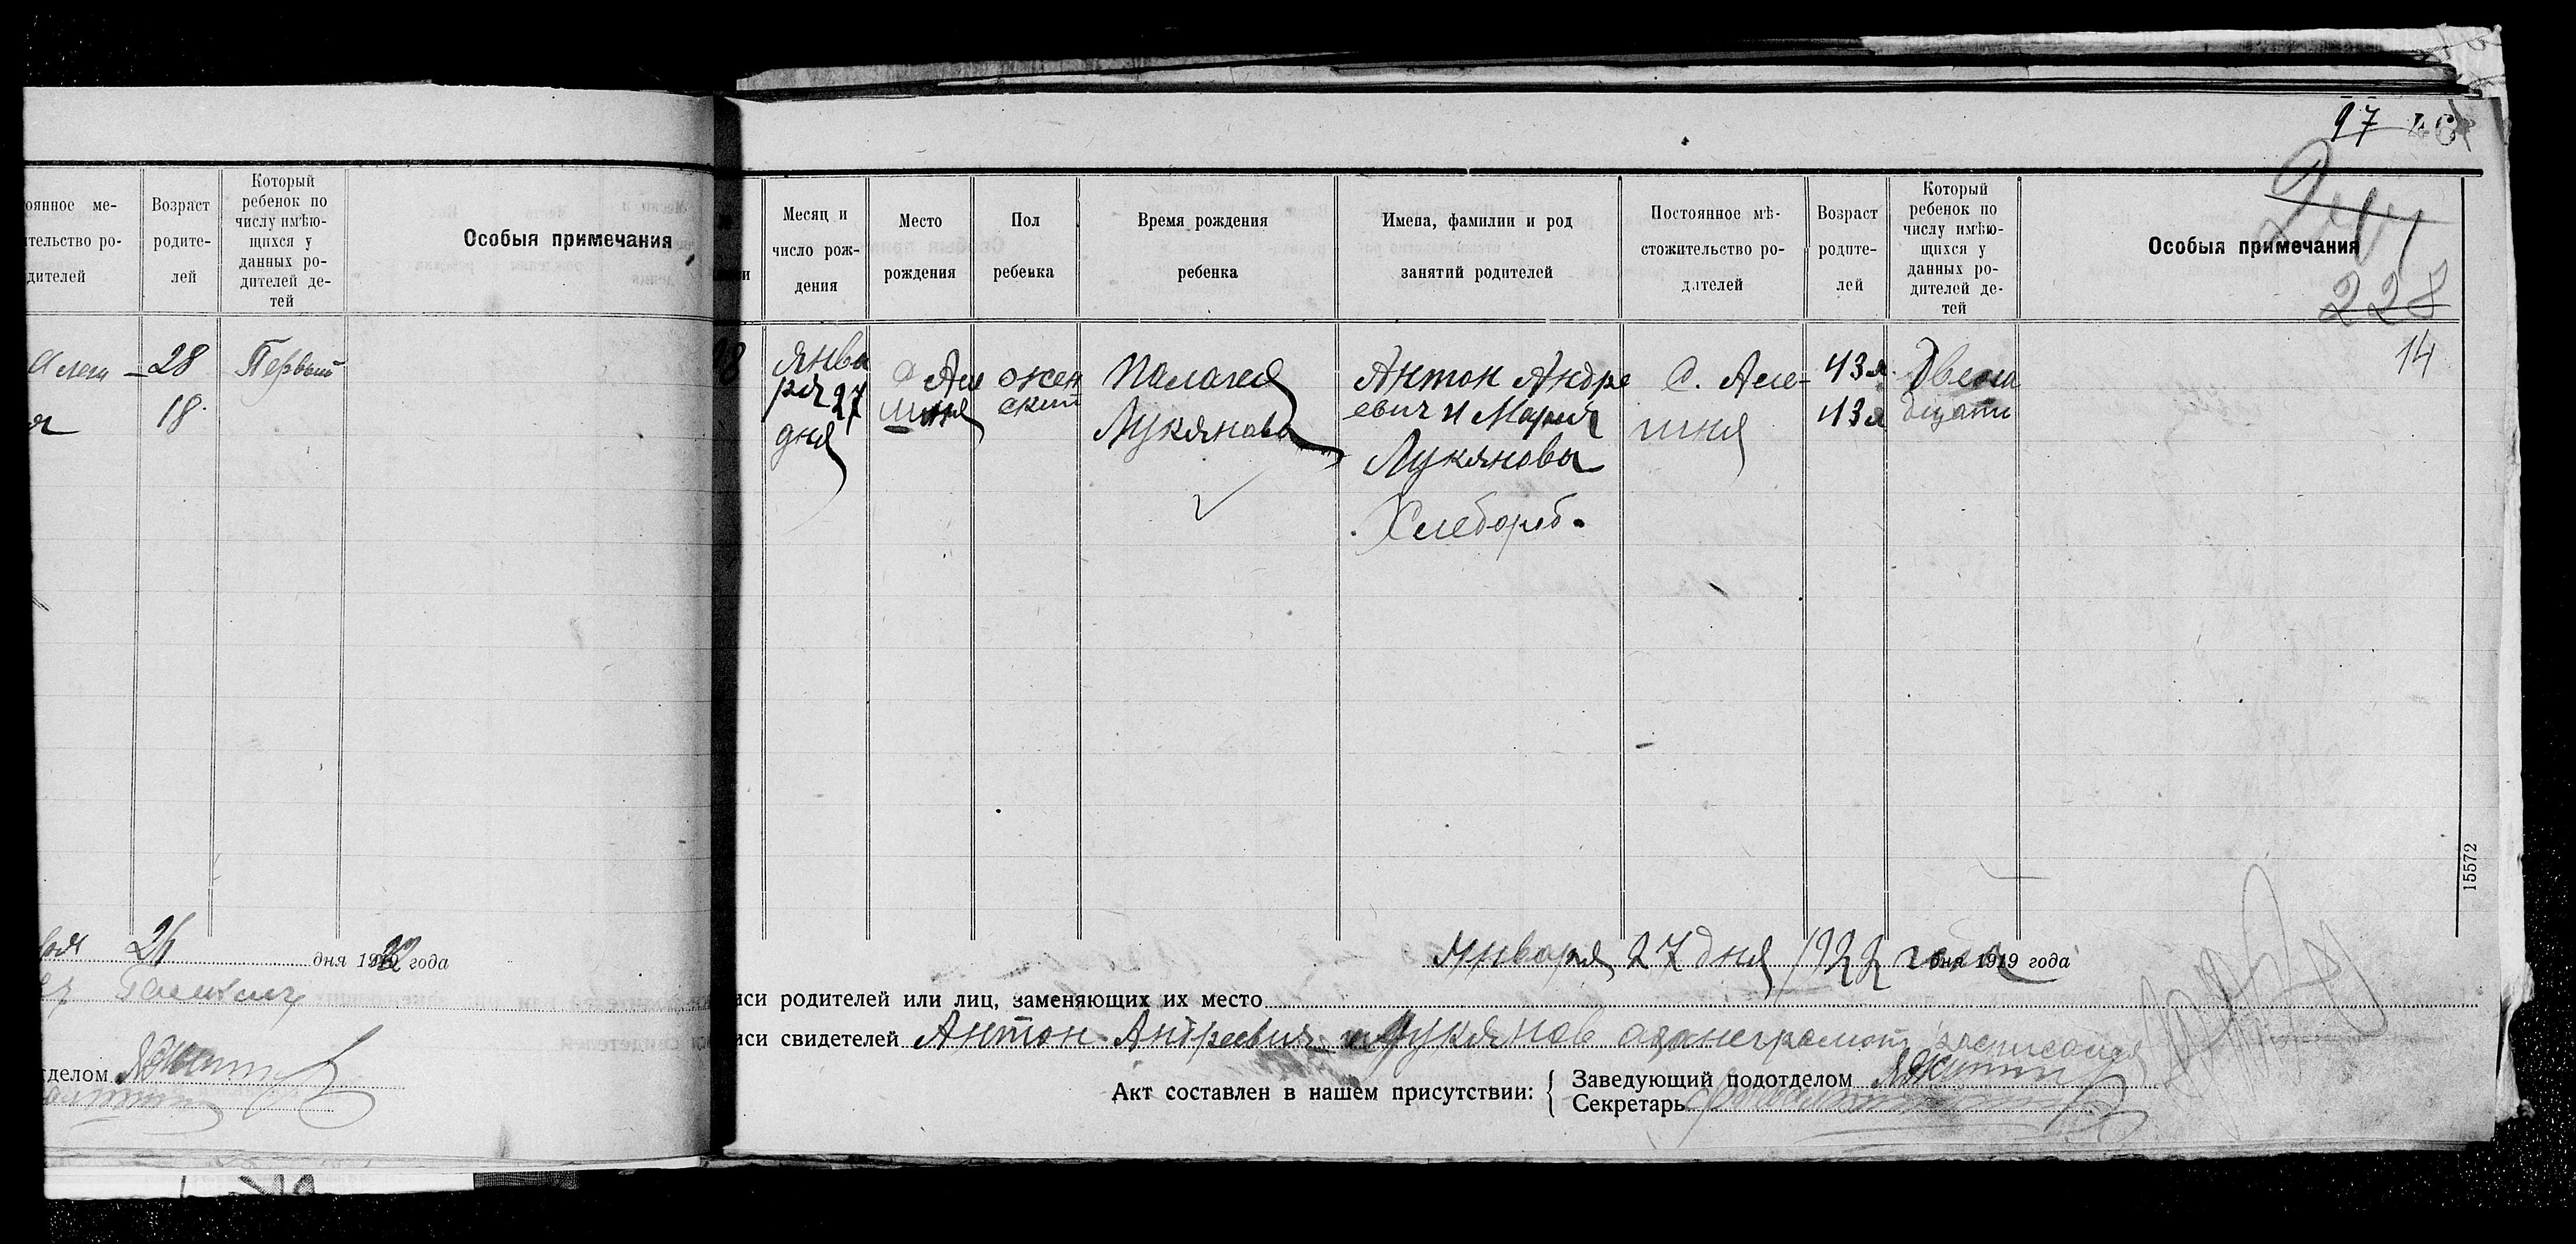 97 46
228
14
оянное ме-
тельство ро-
дителей
Возраст
родите-
лей
Который
ребенок по
числу имѣю-
щихся у
данных ро-
дителей де-
тей
Особыя примечания
28
18.
Первый
26 дня 1922 года
делом
Месяц и
число рож-
дения
Место
рождения
Пол
ребенка
Время рождения
ребенка
Имена, фамилии и род
занятий родителей
Постоянное мѣ-
стожительство ро-
дителей
Возраст
родите-
лей
Который
ребенок по
числу имѣю-
щихся у
данных ро-
дителей де-
тей
Особыя примечания
Янва
ря 27
дня
С Але
шня
жен
ский
Палагея
Лукянова
Антон Андре
евич и Мария
Лукяновы
Хлебороб.
С. Але-
шня
43 л.
43 л
Двена
дцати
15572
Января 27 дня 1922 года дня 1919 года
иси родителей или лиц, заменяющих их место
иси свидетелей Антон Андреевич Лукянов
Акт составлен в нашем присутствии:
Заведующий подотделом
Секретарь